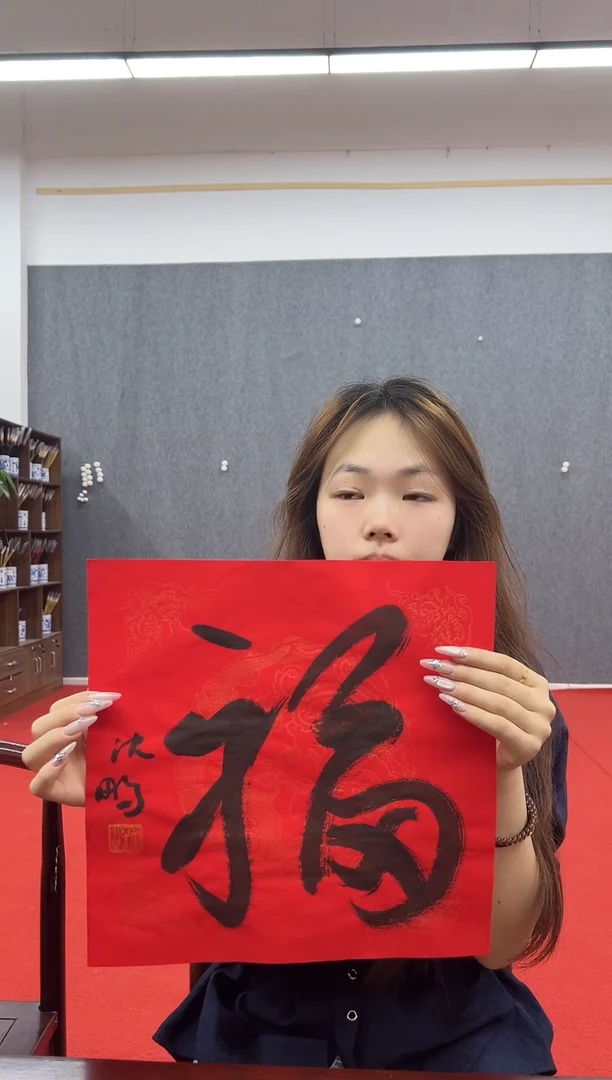 福
沈鹏